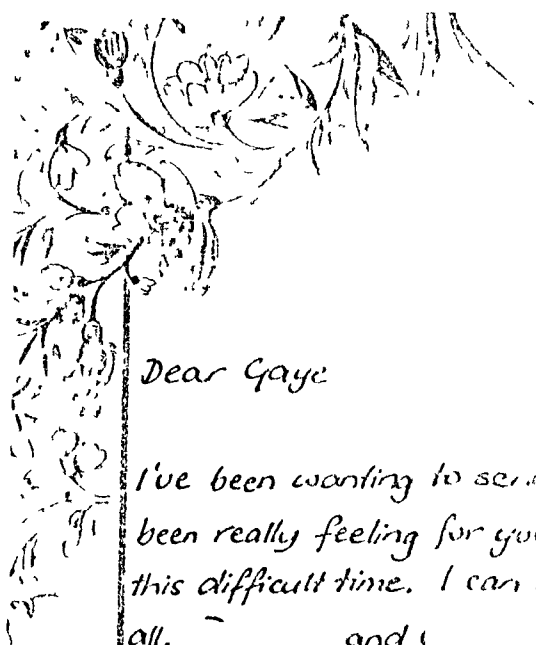 Dear Gaye
I've been wanting to
been really feeling for
this difficult time. I can
all. and